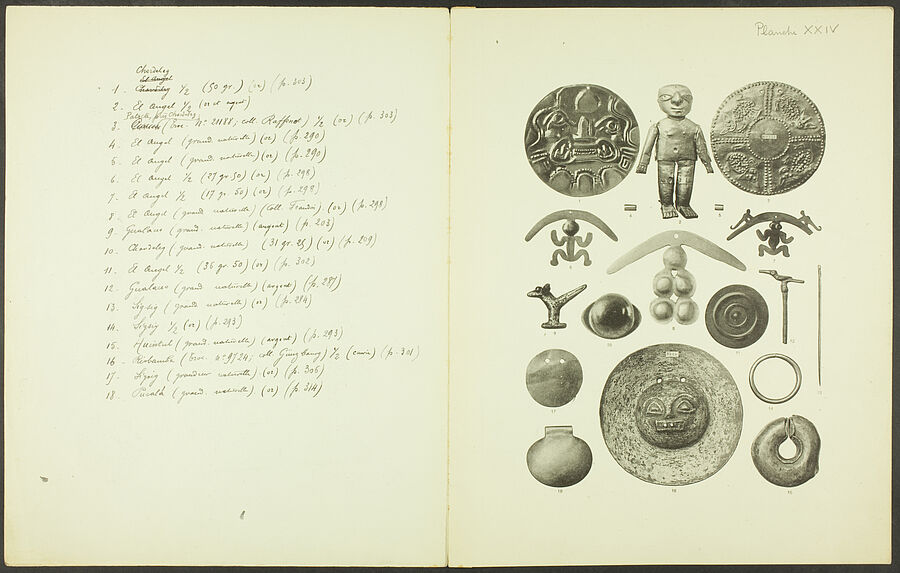 Chordeleg
1 - ½ (50 gr.) (or) (p. 303)
2 - El Angel ½ (or et argent)
3 - (Troc. N° 21188, coll. Raffard) ½ (or) (p. 303)
4 - El Angel (grand. naturelle) (or) (p. 290)
5 - El Angel (grand. naturelle) (or) (p. 290)
6 - El Angel ½ (27 gr. 50) (or) (p. 298)
7 - El Angel ½ (17 gr. 50) (or) (p. 298)
8 - El Angel (grand. naturelle) (coll. ) (or) (p. 298)
9 - Gualaceo (grand. naturelle) (argent) (p. 203)
10 - Chordeleg (grand. naturelle) (31 gr. 25) (or) (p. 209)
11 - El Angel ½ (36 gr. 50) (or) (p. 302)
12 - Gualaceo (grand. naturelle) (argent) (p. 287)
13 - Sigsig (grand. naturelle) (or) (p. 284)
14 - Sigsig ½ (or) (p. 293)
15 - (grand. naturelle) (argent) (p. 293)
16 - Riobamba (Troc. N° 9524, coll. ) ½ (cuivre) (p. 301)
17 - Sigsig (grandeur naturelle) (or) (p. 306)
18 - Pucalá (grand. naturelle) (or) (p. 314)
Planche XXIV
1
2
3
4
5
6
7
8
9
10
11
12
13
14
17
18
16
15